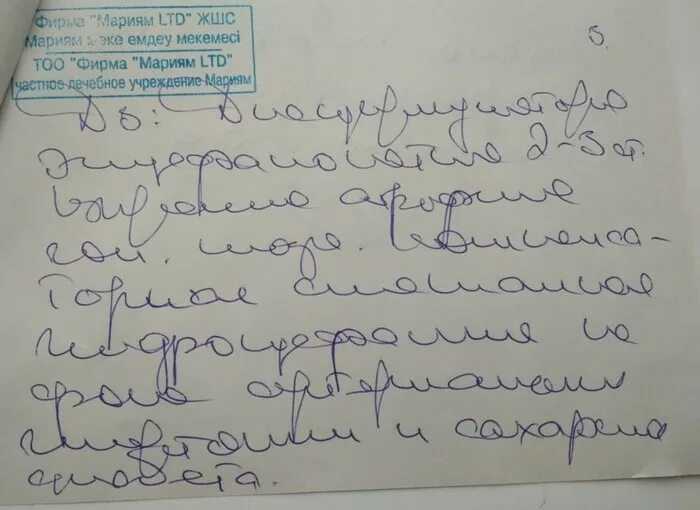 Фирма "Мариям LTD" ЖШС
Мариям жеке емдеу мекемесі
ТОО "Фирма "Мариям LTD"
частное лечебное учреждение Мариям
5.
Ds: Дисциркуляторная
энцефалопатия 2-3 ст.
Выраженная атрофия
гол. мозга. Компенса-
торная смешанная
гидроцефалия на
фоне артериальной
гипертонии и сахарного
диабета.